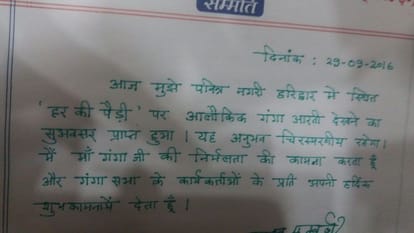 सम्मति
दिनांक : 29-09-2016
आज मुझे पवित्र नगरी हरिद्वार में स्थित
'हर की पैड़ी' पर आलौकिक गंगा आरती देखने का
सुअवसर प्राप्त हुआ । यह अनुभव चिरस्मरणीय रहेगा ।
मैं माँ गंगा जी की निर्मलता की कामना करता हूँ
और गंगा सभा के कार्यकर्त्ताओं के प्रति अपनी हार्दिक
शुभकामनायें देता हूँ ।